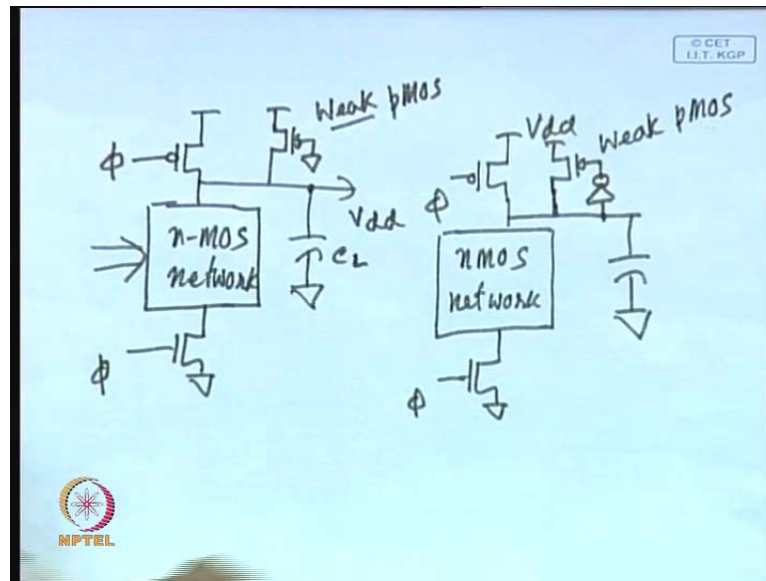 © CET
I.I.T. KGP
Weak pMOS
ϕ
n-MOS
network
Vdd
CL
ϕ
Vdd
weak pMOS
ϕ
nmos
network
ϕ
NPTEL